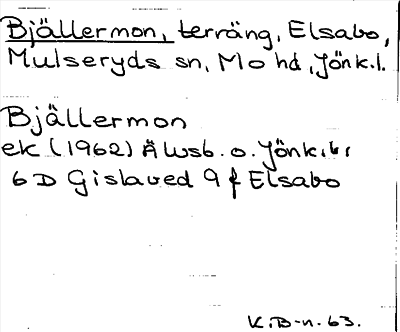 Bjällermon, terräng, Elsabo,
Mulseryds sn, Mo hd, Jönk.l.
Bjällermon
ek (1962) Ä Wsb. o. Jönk.
6 D Gislaved 9 f Elsabo
K.B-n. 63.